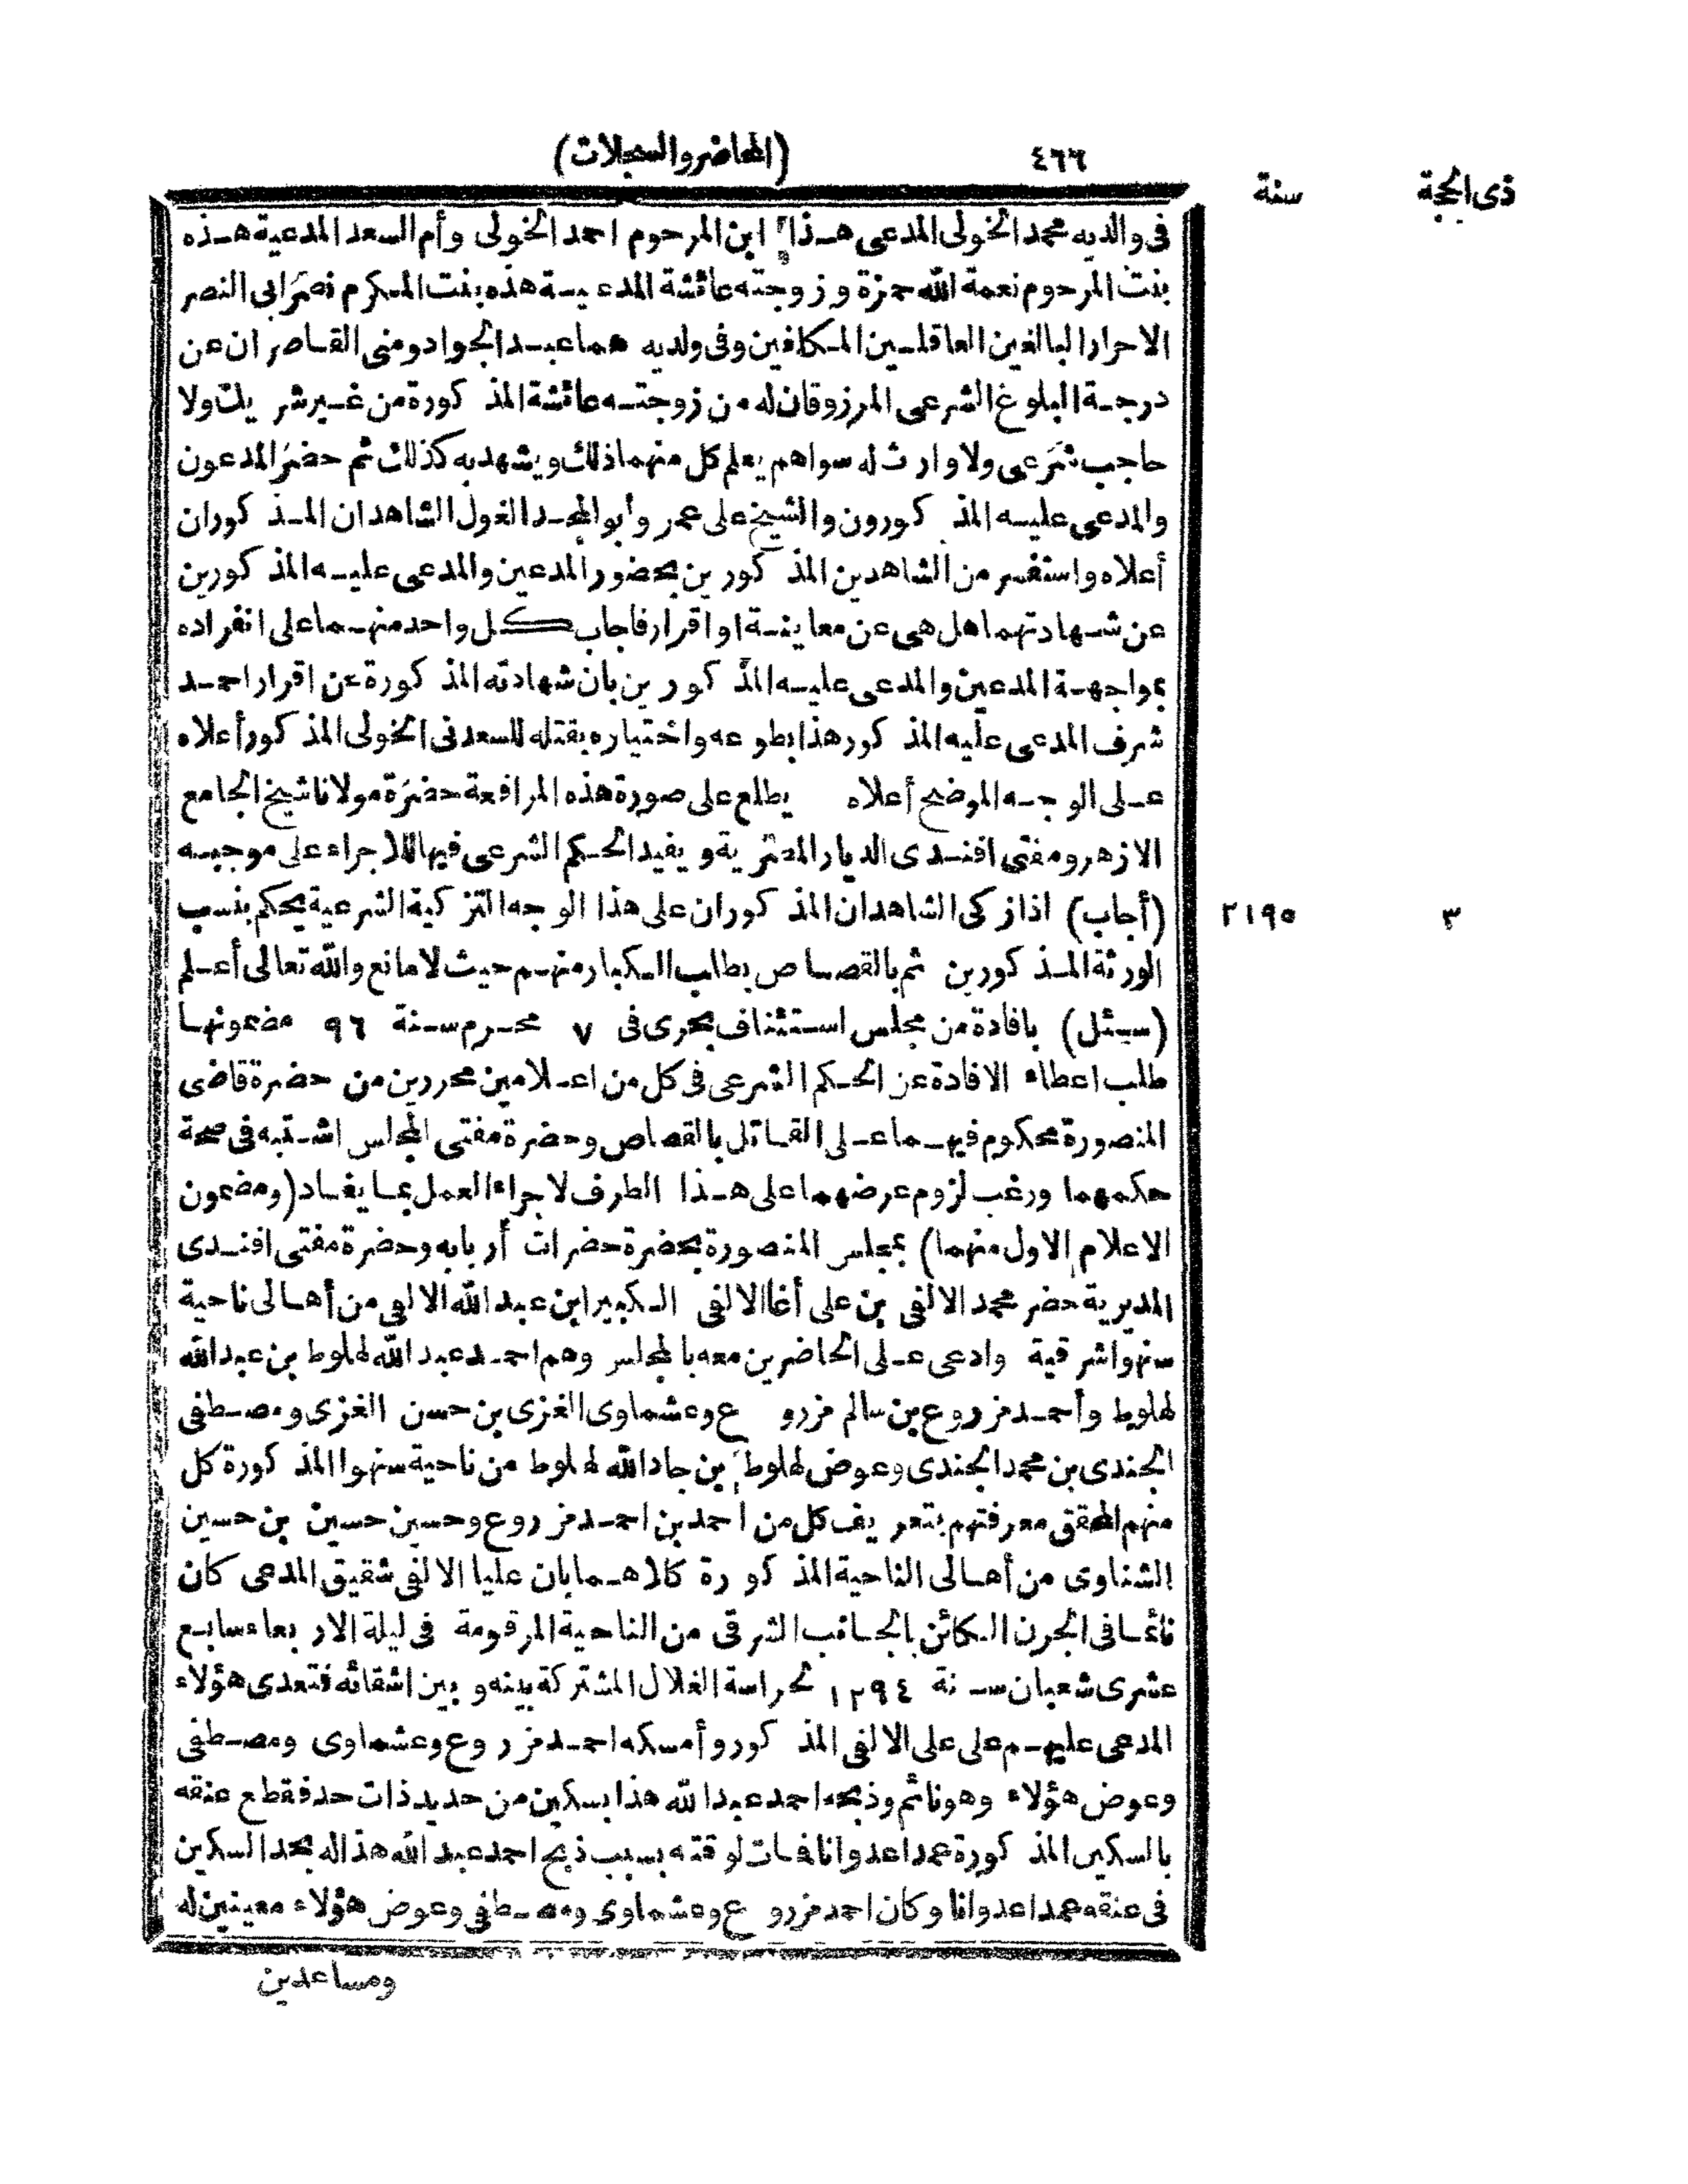 ٤٦٦
(المحاضر والسجلات)
ذى الحجة سنة
فى والديه محمد الخولى المدعى هذا ابن المرحوم احمد الخولى وأم السعد المدعية هذه
بنت المرحوم نعمة الله حمزة وزوجته عائشة المدعية هذه بنت المكرم نصر ابى النصر
الاحرار البالغين العاقلين المكلفين وفى ولديه هما عبد الجواد ومنى القاصران عن
درجة البلوغ الشرعى المرزوقان له من زوجته عائشة المذكورة من غير شريك ولا
حاجب شرعى ولا وارث له سواهم يعلم كل منهما ذلك ويشهد به كذلك ثم حضر المدعون
والمدعى عليه المذكورون والشيخ على عمر وأبو المجد الغول الشاهدان المذكوران
أعلاه واستفسر من الشاهدين المذكورين بحضور المدعين والمدعى عليه المذكورين
عن شهادتهما هل هى عن معاينة او اقرار فاجاب كل واحد منهما على انفراده
بمواجهة المدعين والمدعى عليه المذكورين بان شهادته المذكورة عن اقرار احمد
شرف المدعى عليه المذكور هذا بطوعه واختياره بقتله للسعدنى الخولى المذكور أعلاه
على الوجه الموضح أعلاه يطلع على صورة هذه المرافعة حضرة مولانا شيخ الجامع
الازهر ومفتى افندى الديار المصرية ويفيد الحكم الشرعى فيها للاجراء على موجبه
(أجاب) اذا زكى الشاهدان المذكوران على هذا الوجه التزكية الشرعية يحكم بنسب
٢١٩٥ ٣
الورثة المذكورين ثم بالقصاص بطلب الكبار منهم حيث لا مانع والله تعالى أعلم
(سئل) بافادة من مجلس استئناف بحرى فى ٧ محرم سنة ٩٦ مضمونها
طلب اعطاء الافادة عن الحكم الشرعى فى كل من اعلامين محررين من حضرة قاضى
المنصورة محكوم فيهما على القاتل بالقصاص وحضرة مفتى المجلس اشتبه فى صحة
حكمهما ورغب لزوم عرضهما على هذا الطرف لاجراء العمل بما يفاد (ومضمون
الاعلام الاول منهما) بمجلس المنصورة بحضرة حضرات أربابه وحضرة مفتى افندى
المديرية حضر محمد الالفى بن على أغا الالفى الكبير ابن عبد الله الالفى من أهالى ناحية
سنهوا شرقية وادعى على الحاضرين معه بالمجلس وهم احمد عبد الله لهلوط بن عبد الله
لهلوط وأحمد مزروع بن سالم مزروع وعشماوى الغزى بن حسن الغزى ومصطفى
الجندى بن محمد الجندى وعوض لهلوط بن جاد الله لهلوط من ناحية سنهوا المذكورة كل
منهم المحقق معرفتهم بتعريف كل من احمد بن احمد مزروع وحسين حسين بن حسين
الشناوى من أهالى الناحية المذكورة كلاهما بان عليا الالفى شقيق المدعى كان
نائما فى الجرن الكائن بالجانب الشرقى من الناحية المرقومة فى ليلة الاربعاء سابع
عشرى شعبان سنة ١٢٩٤ لحراسة الغلال المشتركة بينه وبين اشقائه فتعدى هؤلاء
المدعى عليهم على على الالفى المذكور وأمسكه احمد مزروع وعشماوى ومصطفى
وعوض هؤلاء وهو نائم وذبحه احمد عبد الله هذا بسكين من حديد ذات حد فقطع عنقه
بالسكين المذكورة عمدا عدوانا فمات لوقته بسبب ذبح احمد عبد الله هذا له بحد السكين
فى عنقه عمدا عدوانا وكان احمد مزروع وعشماوى ومصطفى وعوض هؤلاء معينين له
ومساعدين